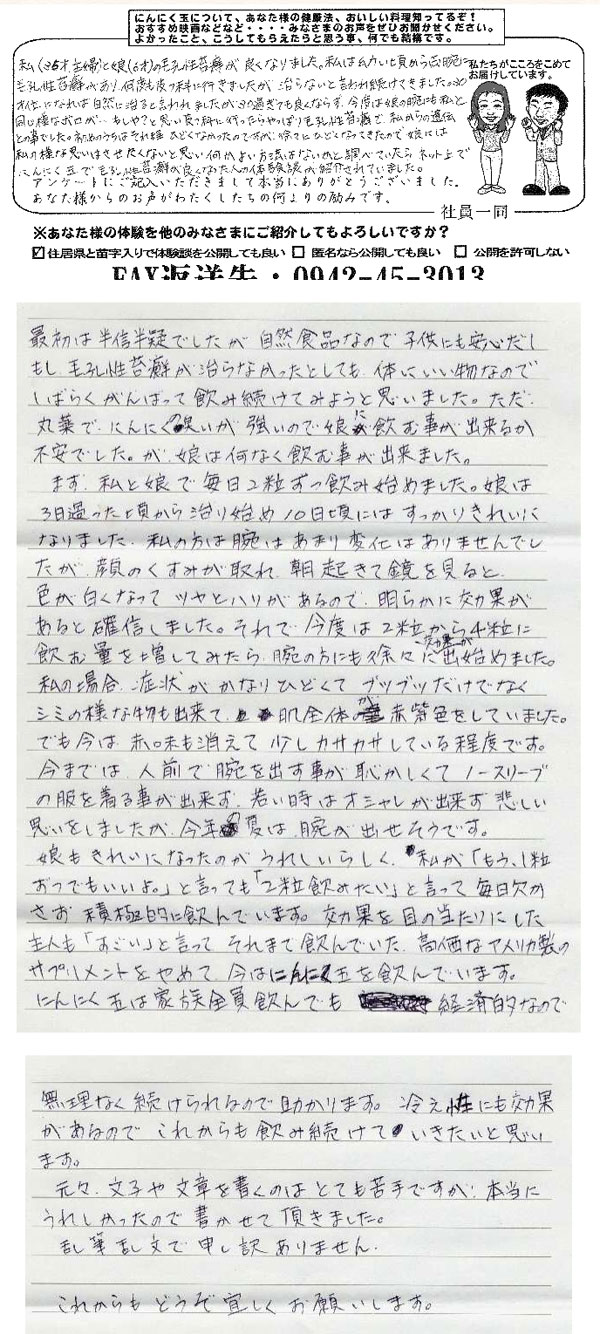 にんにく玉について、あなた様の健康法、おいしい料理知ってるぞ！
おすすめ映画などなど・・・・みなさまのお声をぜひお聞かせください。
よかったこと、こうしてもらえたらと思う事、何でも結構です。
私たちがこころをこめて
お届けしています。
私(36才主婦)と娘(6才)の毛孔性苔癬が良くなりました。私は幼い頃から両腕に
毛孔性苔癬があり、何度も皮フ科に行きましたが治らないと言われ続けてきました。20
才位になれば自然に治ると言われましたが30過ぎても良くならず、今度は娘の腕にも私と
同じ様なボツボツが…もしや?と思い皮フ科に行ったらやっぱり毛孔性苔癬で、私からの遺伝
との事でした。初めのうちはそれ程ひどくなかったのですが、徐々にひどくなってきたので娘には
私の様な思いはさせたくないと思い何かよい方法はないかと調べていたらネット上で
にんにく玉で毛孔性苔癬が良くなった人の体験談が紹介されていました。
アンケートにご記入いただきまして本当にありがとうございました。
あなた様からのお声がわたくしたちの何よりの励みです。
社員一同
※あなた様の体験を他のみなさまにご紹介してもよろしいですか？
☑住居県と苗字入りで体験談を公開しても良い □ 匿名なら公開しても良い □ 公開を許可しない
FAX返送先・0942-45-3013
最初は半信半疑でしたが 自然食品なので 子供にも安心だし
もし、毛孔性苔癬が治らなかったとしても、体にいい物なので
しばらくがんばって飲み続けてみようと思いました。ただ、
丸薬で、にんにくの臭いが強いので娘に飲む事が出来るか
不安でした。が、娘は何なく飲む事が出来ました。
まず、私と娘で毎日2粒ずつ飲み始めました。娘は
3日過った頃から治り始め 10日頃にはすっかりきれいに
なりました。私の方は腕はあまり変化はありませんでし
たが、顔のくすみが取れ、朝起きて鏡を見ると、
色が白くなってツヤとハリがあるので、明らかに効果が
あると確信しました。それで、今度は2粒から4粒に
飲む量を増してみたら、腕の方にも徐々に効果が出始めました。
私の場合、症状がかなりひどくてブツブツだけでなく
シミの様な物も出来て、肌全体が赤紫色をしていました。
でも今は、赤味も消えて少しカサカサしている程度です。
今までは、人前で腕を出す事が恥かしくてノースリーブ
の服を着る事が出来ず、若い時はオシャレが出来ず悲しい
思いをしましたが、今年の夏は、腕が出せそうです。
娘もきれいになったのがうれしいらしく、私が「もう、1粒
ずつでもいいよ。」と言っても「2粒飲みたい」と言って毎日欠か
さず 積極的に飲んでいます。効果を目の当たりにした
主人も「すごい」と言ってそれまで飲んでいた、高価なアメリカ製の
サプリメントをやめて、今はにんにく玉を飲んでいます。
にんにく玉は家族全員飲んでも 経済的なので
無理なく続けられるので助かります。冷え性にも効果
があるので これからも飲み続けていきたいと思い
ます。
元々、文字や文章を書くのはとても苦手ですが、本当に
うれしかったので書かせて頂きました。
乱筆乱文で申し訳ありません。
これからもどうぞ宜しくお願いします。